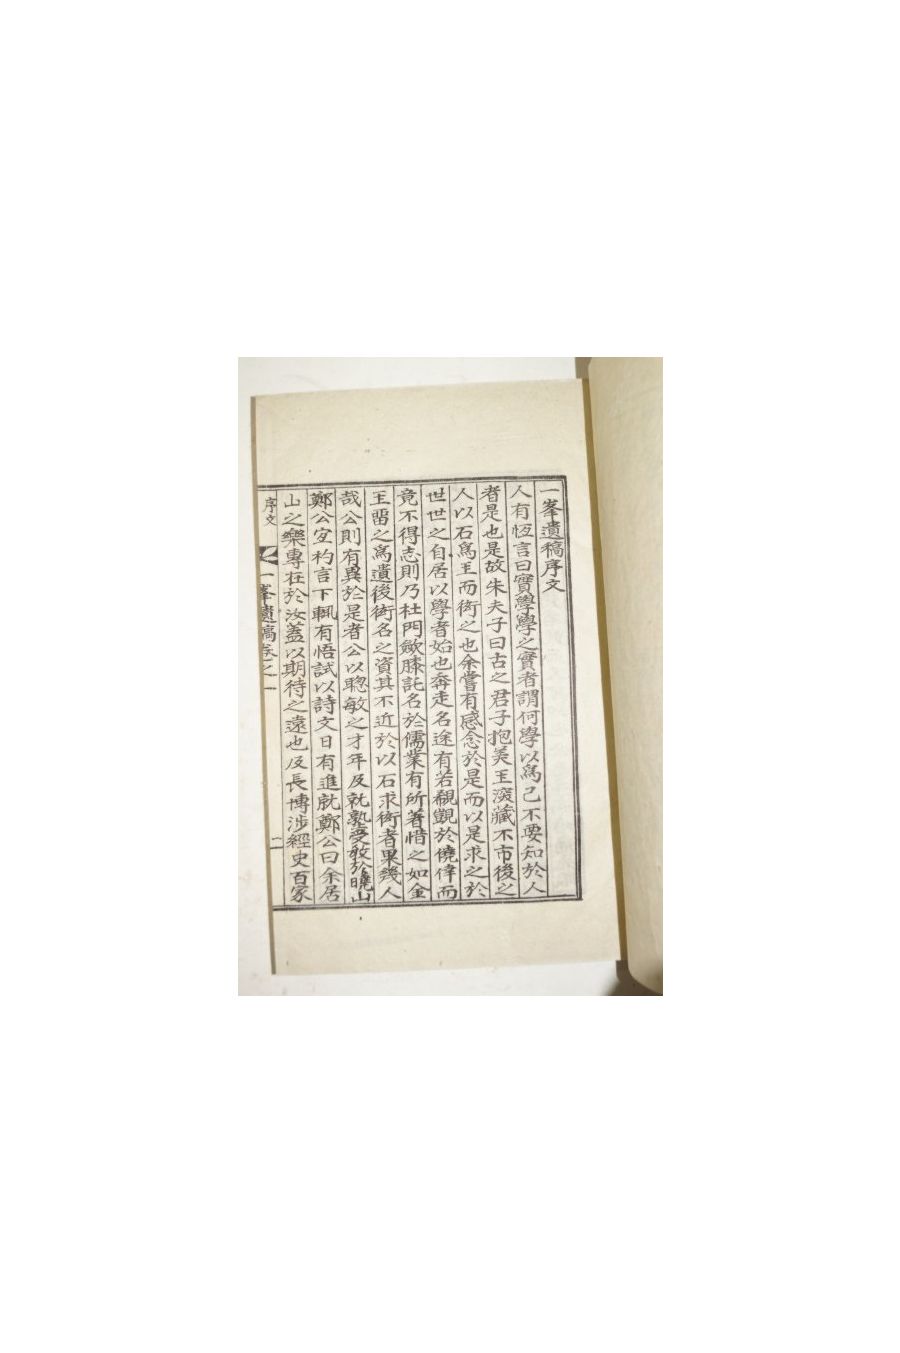 一峯遺稿序文
人有恆言曰實學學之實者謂何學以爲己不要知於人
者是也是故朱夫子曰古之君子抱美玉深藏不市後之
人以石爲玉而衒之也余嘗有感念於是而以是求之於
世世之自居以學者始也奔走名途有若覬覦於僥倖而
竟不得志則乃杜門斂膝託名於儒業有所著惜之如金
玉留之爲遺後衒名之資其不近於以石求衒者果幾人
哉公則有異於是者公以聰敏之才年及就塾受敎於曉山
鄭公宜杓言下輒有悟試以詩文日有進就鄭公曰余居
山之樂專在於汝蓋以期待之遠也及長博涉經史百家
序文
一峯遺稿卷之一